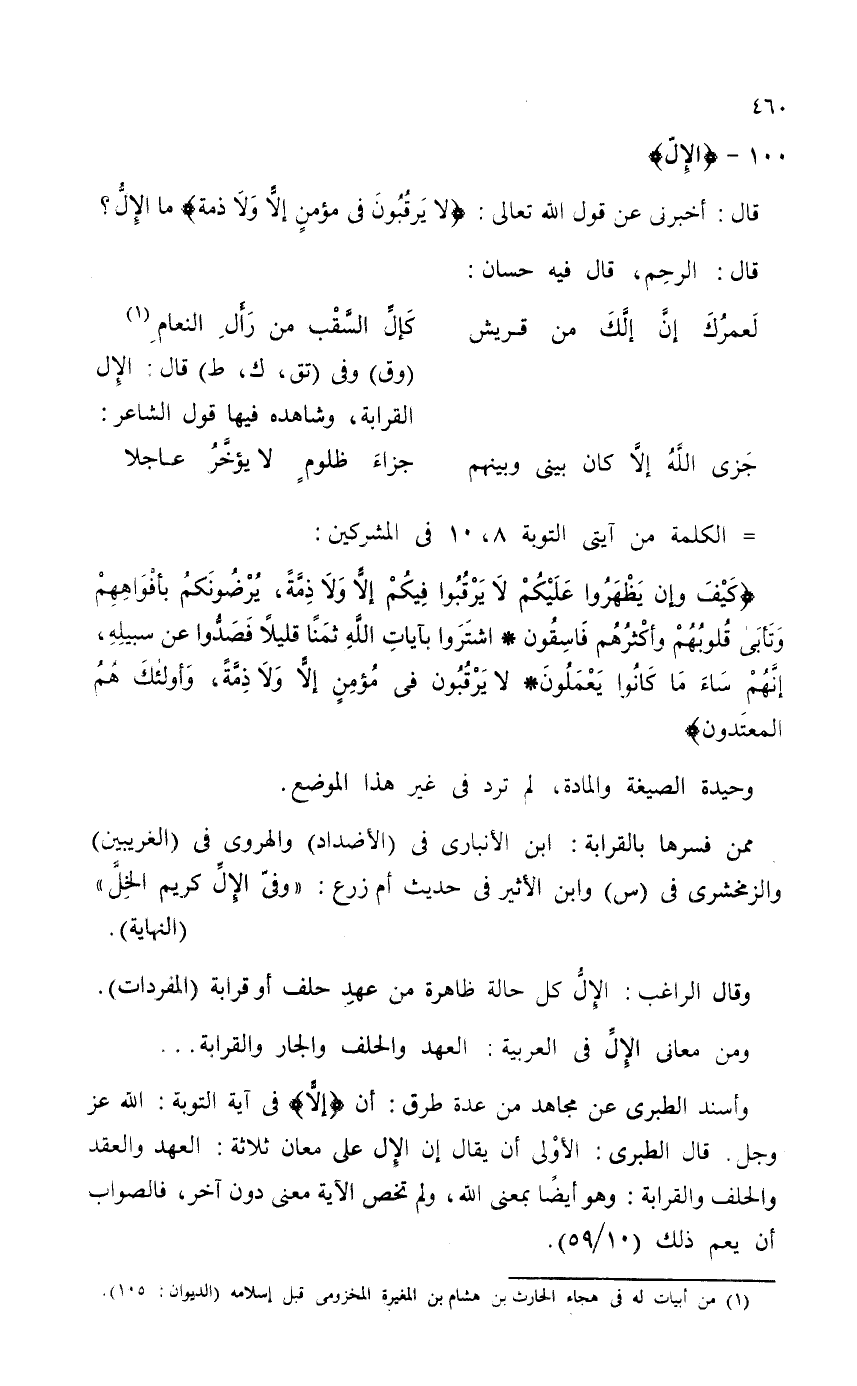 ٤٦٠
١٠٠ - ﴿الإِلّ﴾
قال : أخبرنى عن قول الله تعالى : ﴿لا يَرقُبُونَ فى مؤمنٍ إلًّا وَلَا ذمة﴾ ما الإِلُّ ؟
قال : الرحِم، قال فيه حسان :
لَعمرُكَ إنَّ إلَّكَ من قريش كَإلِّ السَّقْب من رَأْلِ النعامِ (١)
(وق) وفى (تق، ك، ط) قال : الإِل
القرابة، وشاهده فيها قول الشاعر :
جَزى اللَّهُ إلًّا كان بينى وبينهم جزاءَ ظلومٍ لا يؤخَّرُ عاجلا
= الكلمة من آيتى التوبة ٨، ١٠ فى المشركين :
﴿كَيْفَ وإن يَظْهَرُوا عَلَيْكُمْ لَا يَرْقُبُوا فِيكُمْ إلًّا وَلَا ذِمَّةً، يُرْضُونَكمُ بأَفْوَاهِهِمْ
وَتَأبَىٰ قُلوبُهُمْ وأكثرُهُم فَاسِقُون * اشتَرَوا بآياتِ اللَّهِ ثمَنًا قليلًا فَصَدُّوا عن سبيلِهِ،
إنَّهُمْ سَاءَ مَا كَانُوا يَعْمَلُونَ* لا يَرْقُبُون فى مُؤمِنٍ إلًّا وَلَا ذِمَّةً، وَأولئكَ هُمُ
المعتَدون﴾
وحيدة الصيغة والمادة، لم ترد فى غير هذا الموضع.
ممن فسرها بالقرابة : ابن الأنبارى فى (الأضداد) والهروى فى (الغريبين)
والزمخشرى فى (س) وابن الأثير فى حديث أم زرع : «وفىّ الإِلِّ كريم الخِلَّ»
(النهاية) .
وقال الراغب : الإِلُّ كل حالة ظاهرة من عهدِ حلف أو قرابة (المفردات).
ومن معانى الإِلِّ فى العربية : العهد والحلف والجار والقرابة...
وأسند الطبرى عن مجاهد من عدة طرق : أن ﴿إلًّا﴾ فى آية التوبة : الله عز
وجل. قال الطبرى : الأوْلى أن يقال إن الإِل على معان ثلاثة : العهد والعقد
والحلف والقرابة : وهو أيضًا بمعنى الله، ولم تخص الآية معنى دون آخر، فالصواب
أن يعم ذلك (٥٩/١٠).
(١) من أبيات له فى هجاء الحارث بن هشام بن المغيرة المخزومى قبل إسلامه (الديوان : ١٠٥).